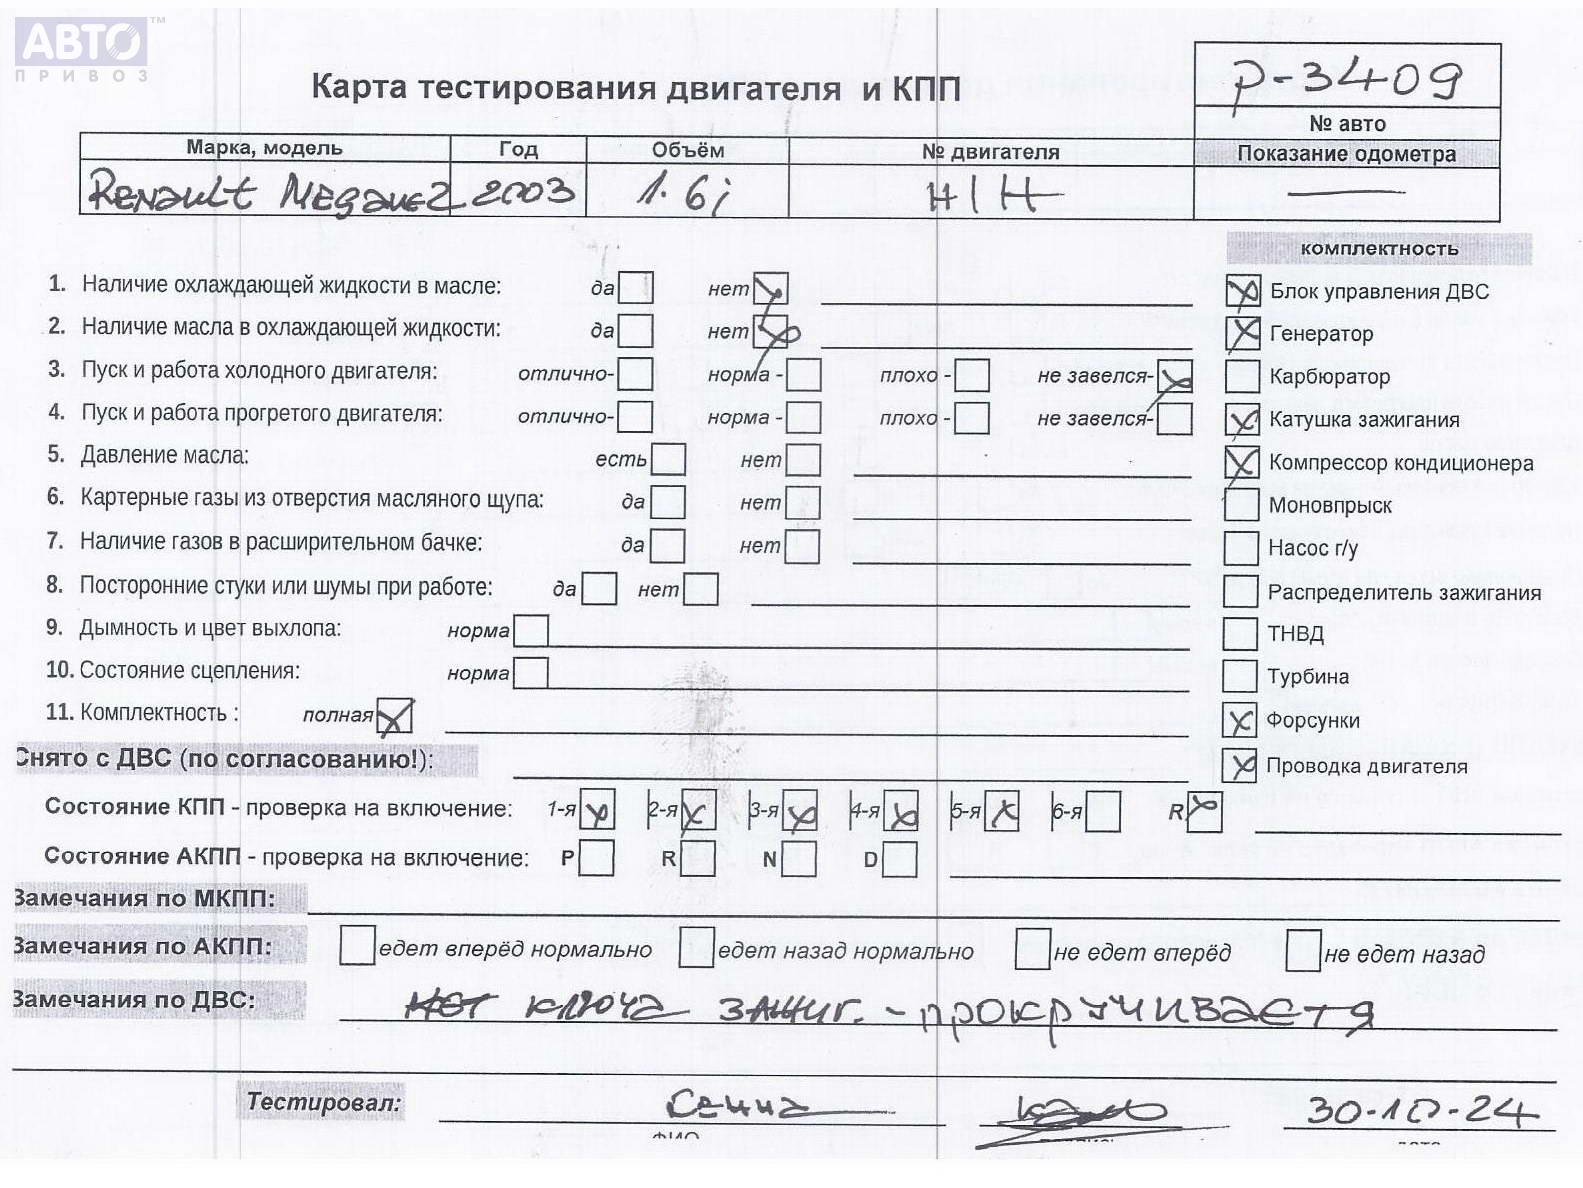 АВТО™
ПРИВОЗ
Карта тестирования двигателя и КПП
р-3409
№ авто
Марка, модель Год Объём № двигателя Показание одометра
Renault Megane2 2003 1.6i Н/Н —
комплектность
1. Наличие охлаждающей жидкости в масле: да нет
Блок управления ДВС
2. Наличие масла в охлаждающей жидкости: да нет
Генератор
3. Пуск и работа холодного двигателя: отлично- норма - плохо - не завелся-
Карбюратор
4. Пуск и работа прогретого двигателя: отлично- норма - плохо - не завелся-
Катушка зажигания
5. Давление масла: есть нет
Компрессор кондиционера
6. Картерные газы из отверстия масляного щупа: да нет
Моновпрыск
7. Наличие газов в расширительном бачке: да нет
Насос г/у
8. Посторонние стуки или шумы при работе: да нет
Распределитель зажигания
9. Дымность и цвет выхлопа: норма
ТНВД
10. Состояние сцепления: норма
Турбина
11. Комплектность : полная
Форсунки
Снято с ДВС (по согласованию!):
Проводка двигателя
Состояние КПП - проверка на включение: 1-я 2-я 3-я 4-я 5-я 6-я R
Состояние АКПП - проверка на включение: P R N D
Замечания по МКПП:
Замечания по АКПП: едет вперёд нормально едет назад нормально не едет вперёд не едет назад
Замечания по ДВС: нет ключа зажиг. - прокручиваетя
Тестировал: 30-10-24
ФИО